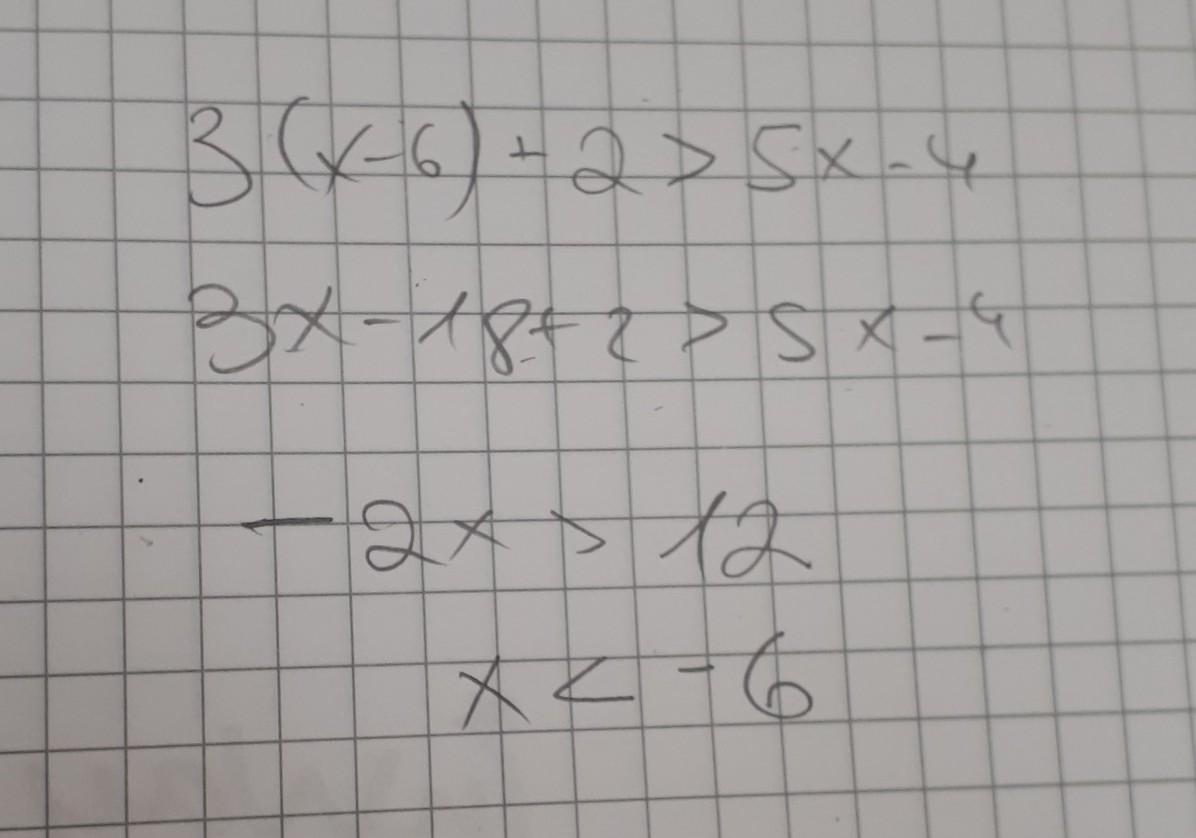 3(x-6)+2>5x-4
3x-18+2>5x-4
-2x>12
x<-6